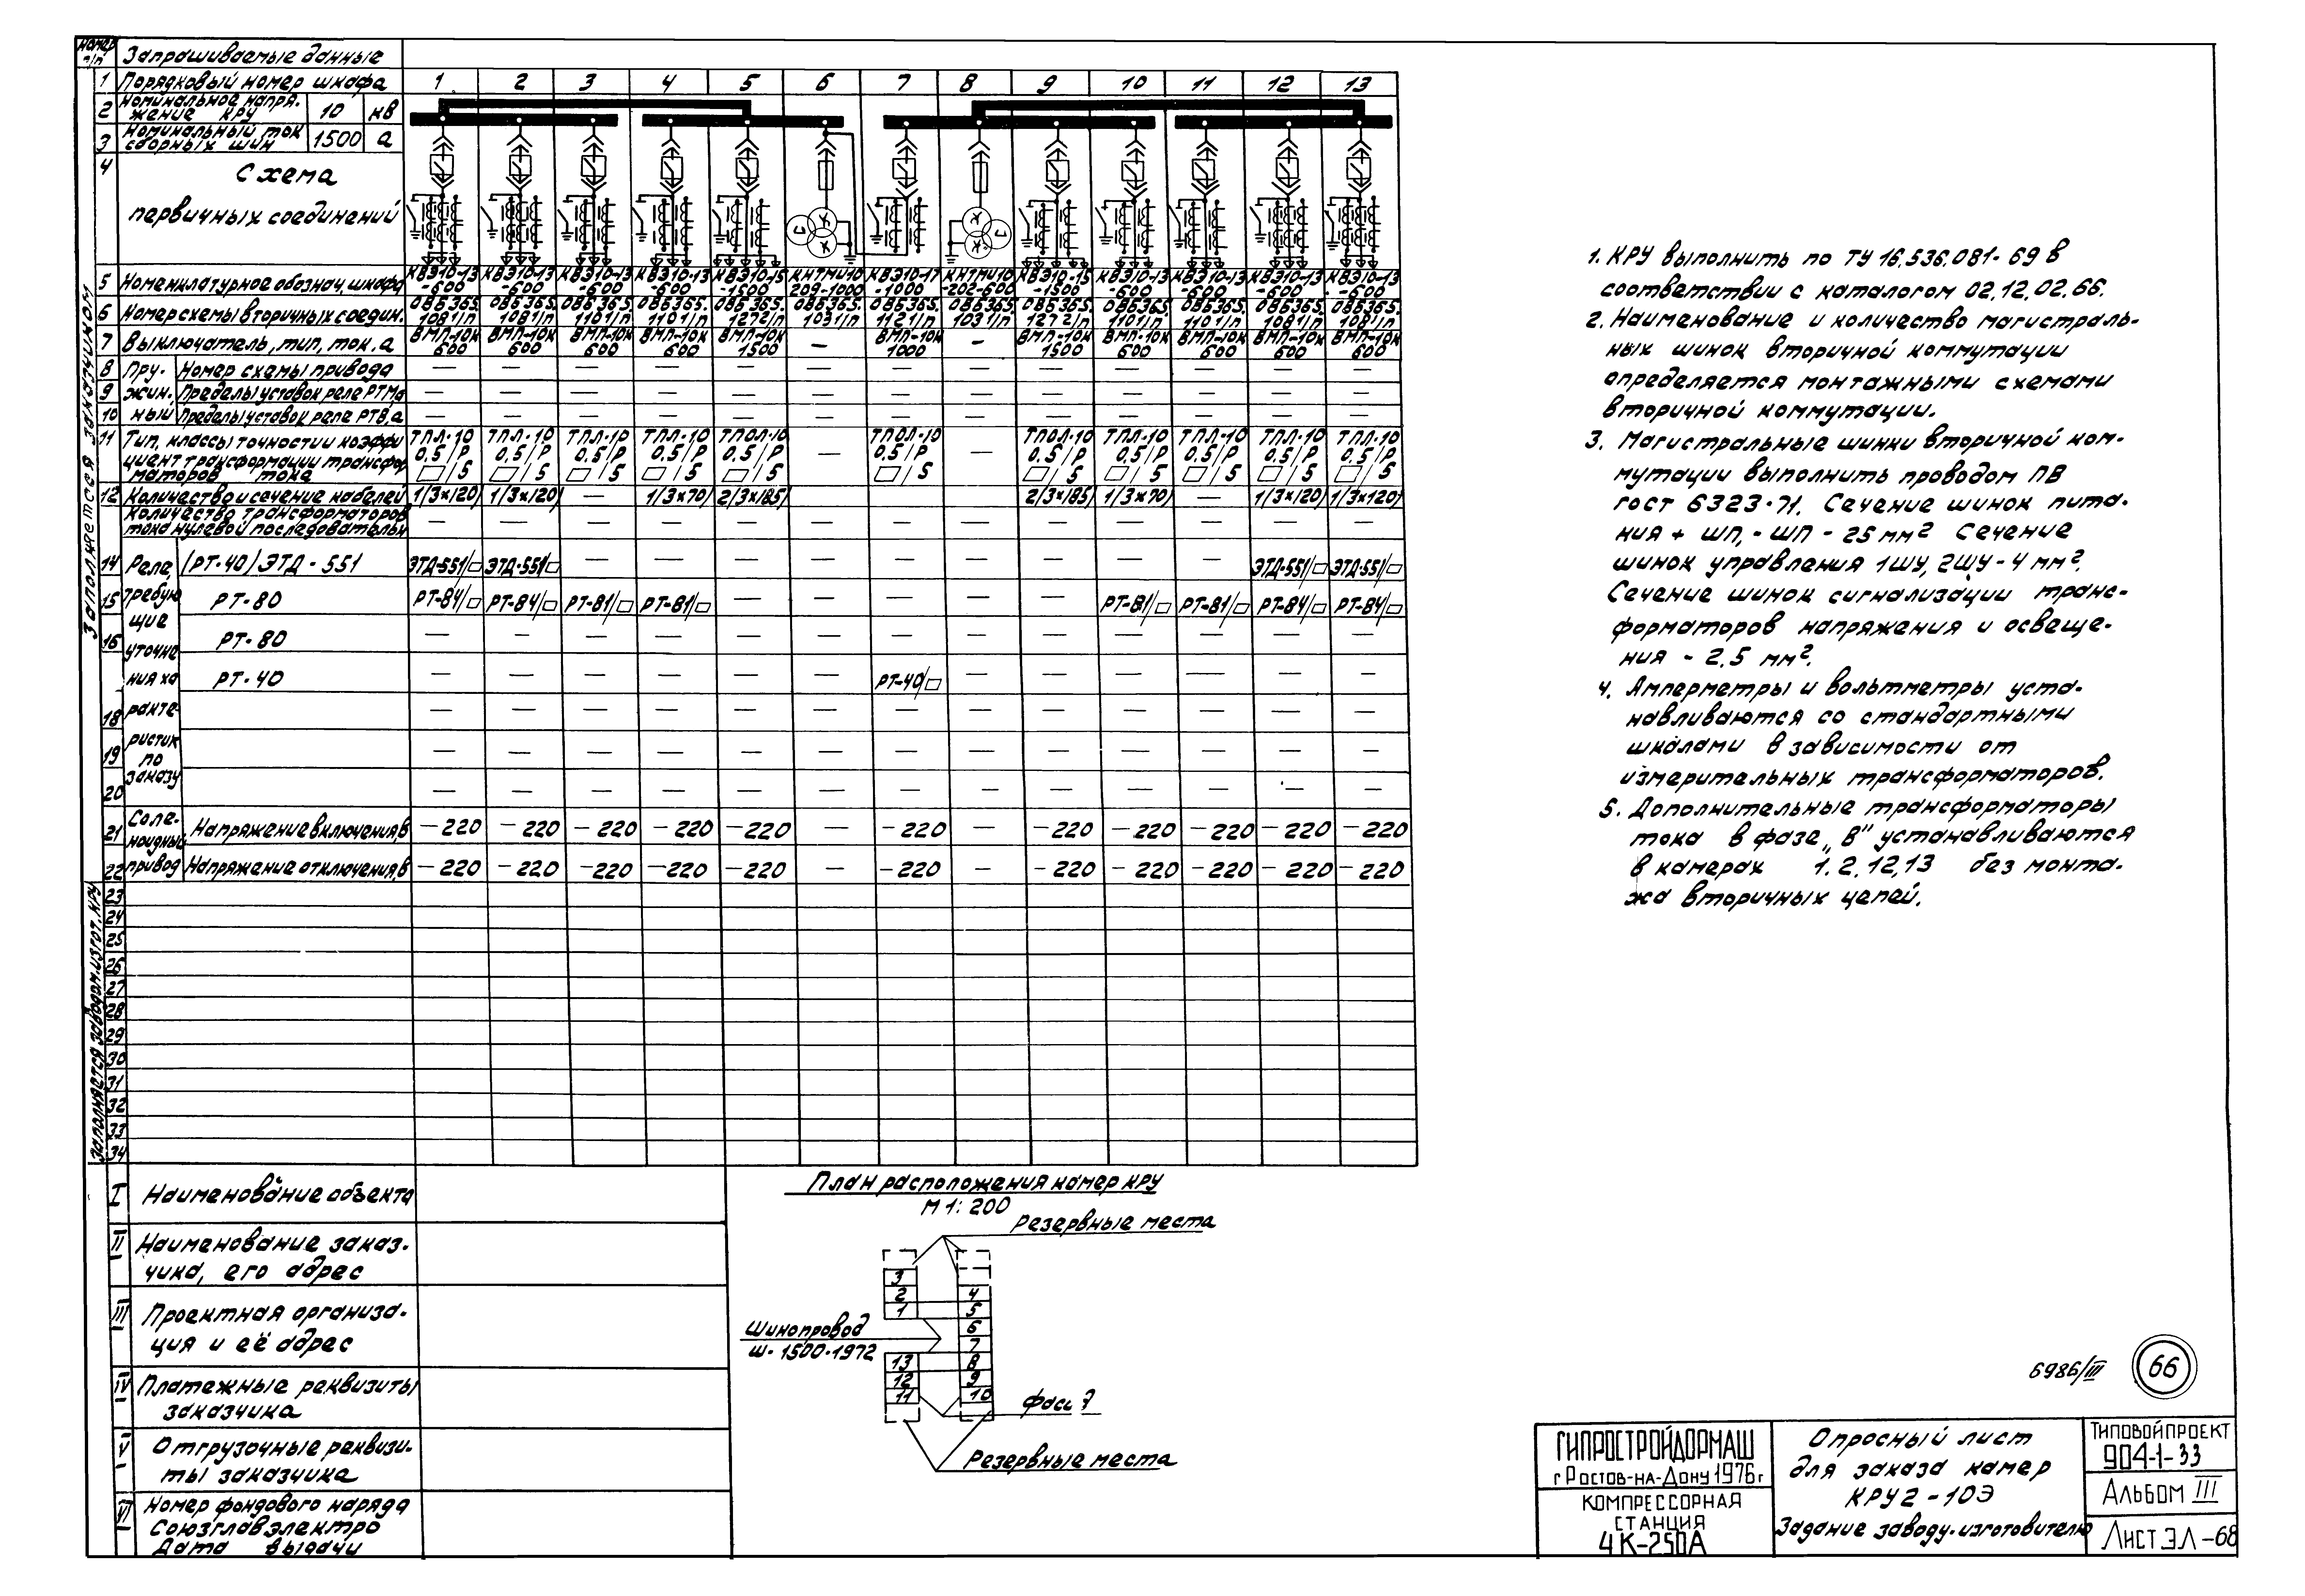 номер п/п Запрашиваемые данные
1 Порядковый номер шкафа 1 2 3 4 5 6 7 8 9 10 11 12 13
2 Номинальное напря- 10 кв
жение КРУ
3 Номинальный ток 1500 а
сборных шин
4 Схема
первичных соединений
5 Номенклатурное обознач. шкафа КВЭ10-13 КВЭ10-13 КВЭ10-13 КВЭ10-13 КВЭ10-15 КНТМИ10 КВЭ10-17 КНТМИ10 КВЭ10-15 КВЭ10-13 КВЭ10-13 КВЭ10-13 КВЭ10-13
-600 -600 -600 -600 -1500 209-1000 -1000 -202-600 -1500 -600 -600 -600 -600
6 Номер схемы вторичных соедин. ОВБ365. ОВБ365. ОВБ365. ОВБ365. ОВБ365. ОВБ365. ОВБ365. ОВБ365. ОВБ365. ОВБ365. ОВБ365. ОВБ365. ОВБ365.
1081/п 1081/п 1101/п 1101/п 1272/п 1031/п 1121/п 1031/п 1272/п 1101/п 1101/п 1081/п 1081/п
7 Выключатель, тип, ток. а ВМП-10К ВМП-10К ВМП-10К ВМП-10К ВМП-10К — ВМП-10К — ВМП-10К ВМП-10К ВМП-10К ВМП-10К ВМП-10К
600 600 600 600 1500 1000 1500 600 600 600 600
8 Пру- Номер схемы привода — — — — — — — — — — — — —
9 жин. Пределы уставок реле РТМ,а — — — — — — — — — — — — —
10 ный Пределы уставок реле РТВ,а — — — — — — — — — — — — —
11 Тип, классы точности и коэффи ТПЛ-10 ТПЛ-10 ТПЛ-10 ТПЛ-10 ТПОЛ-10 — ТПОЛ-10 — ТПОЛ-10 ТПЛ-10 ТПЛ-10 ТПЛ-10 ТПЛ-10
циент трансформации трансфор 0.5/Р 0.5/Р 0.5/Р 0.5/Р 0.5/Р 0.5/Р 0.5/Р 0.5/Р 0.5/Р 0.5/Р 0.5/Р
маторов тока /5 /5 /5 /5 /5 /5 /5 /5 /5 /5 /5
12 Количество и сечение кабелей 1/3x120/ 1/3x120/ — 1/3x70/ 2/3x185/ 2/3x185/ 1/3x70/ — 1/3x120/ 1/3x120/
Количество трансформаторов
тока нулевой последовательн — — — — — — — — — — — — —
14 Реле, (РТ-40) ЭТД-551 ЭТД-551/ ЭТД-551/ — — — — — — — — — ЭТД-551/ ЭТД-551/
15 требую РТ-80 РТ-84/ РТ-84/ РТ-81/ РТ-81/ — — — — — РТ-81/ РТ-81/ РТ-84/ РТ-84/
щие
16 уточне РТ-80 — — — — — — — — — — — — —
ния ха РТ-40 — — — — — — РТ-40/ — — — — — —
18 ракте- — — — — — — — — — — — — —
ристик
19 по — — — — — — — — — — — — —
заказу
20 — — — — — — — — — — — — —
21 Соле- Напряжение включения,в —220 —220 —220 —220 —220 — —220 — —220 —220 —220 —220 —220
ноидный
22 привод Напряжение отключения,в —220 —220 —220 —220 —220 — —220 — —220 —220 —220 —220 —220
23
24
25
26
27
28
29
30
31
32
33
34
Заполняется заказчиком
Заполняется заводом изгот. КРУ
I Наименование объекта
II Наименование заказ-
чика, его адрес
III Проектная организа-
ция и её адрес
IV Платежные реквизиты
заказчика
V Отгрузочные реквизи-
ты заказчика
VI Номер фондового наряда
Союзглавэлектро
Дата выдачи
План расположения камер КРУ
М 1:200
Резервные места
3
2 4
1 5
Шинопровод 6
Ш-1500-1972 7
13 8
12 9
11 10
Резервные места
1. КРУ выполнить по ТУ 16.536.081-69 в
соответствии с каталогом 02.12.02.66.
2. Наименование и количество магистраль-
ных шинок вторичной коммутации
определяется монтажными схемами
вторичной коммутации.
3. Магистральные шинки вторичной ком-
мутации выполнить проводом ПВ
гост 6323-71. Сечение шинок пита-
ния + ШП, - ШП - 25 мм² Сечение
шинок управления 1ШУ, 2ШУ-4 мм².
Сечение шинок сигнализации транс-
форматоров напряжения и освеще-
ния - 2.5 мм².
4. Амперметры и вольтметры уста-
навливаются со стандартными
шкалами в зависимости от
измерительных трансформаторов.
5. Дополнительные трансформаторы
тока в фазе „В" устанавливаются
в камерах 1.2.12,13 без монта-
жа вторичных цепей.
6986/III 66
ГИПРОСТРОЙДОРМАШ
г Ростов-на-Дону 1976г
КОМПРЕССОРНАЯ
СТАНЦИЯ
4К-250А
Опросный лист
для заказа камер
КРУ2-10Э
Задание заводу-изготовителю
ТИПОВОЙ ПРОЕКТ
904-1-33
АЛЬБОМ III
ЛИСТ ЭЛ-68